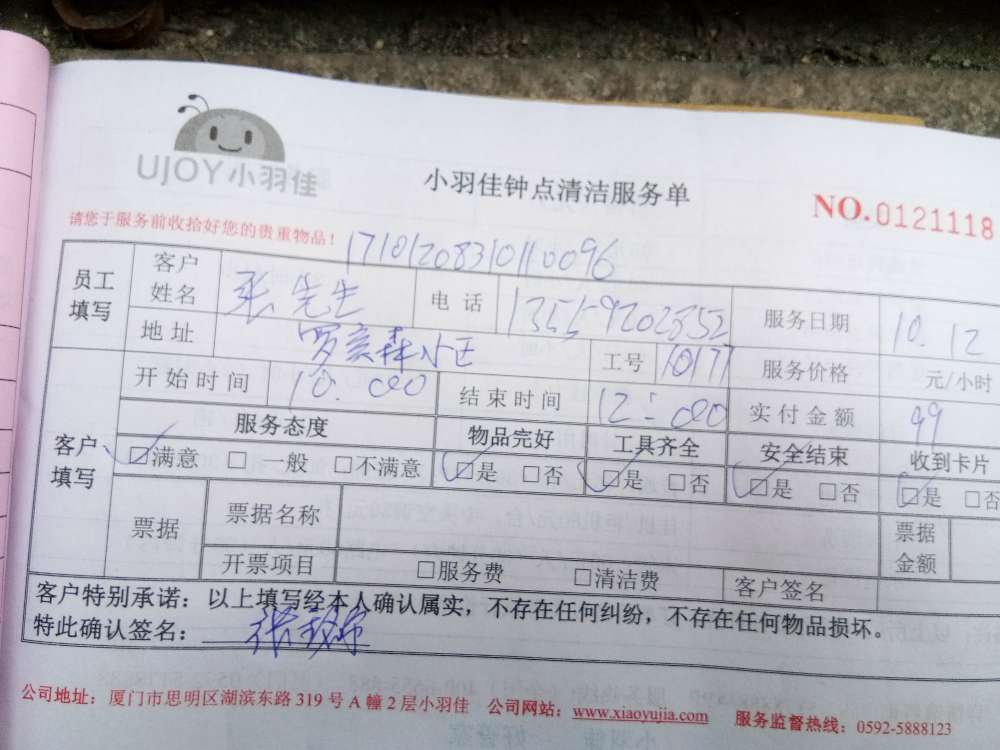 UJOY小羽佳
小羽佳钟点清洁服务单
NO.0121118
请您于服务前收拾好您的贵重物品！
1710120831010096
员工填写 客户姓名 张先生 电话 13559202352 服务日期 10.12
地址 森小区 工号 10177 服务价格 元/小时
客户填写 开始时间 10:000 结束时间 12:000 实付金额 99
服务态度 物品完好 工具齐全 安全结束 收到卡片
☑满意 □一般 □不满意 ☑是 □否 ☑是 □否 ☑是 □否 ☑是 □否
票据 票据名称 票据金额
开票项目 □服务费 □清洁费 客户签名
客户特别承诺：以上填写经本人确认属实，不存在任何纠纷，不存在任何物品损坏。
特此确认签名：张
公司地址：厦门市思明区湖滨东路319号A幢2层小羽佳 公司网站：www.xiaoyujia.com 服务监督热线：0592-5888123